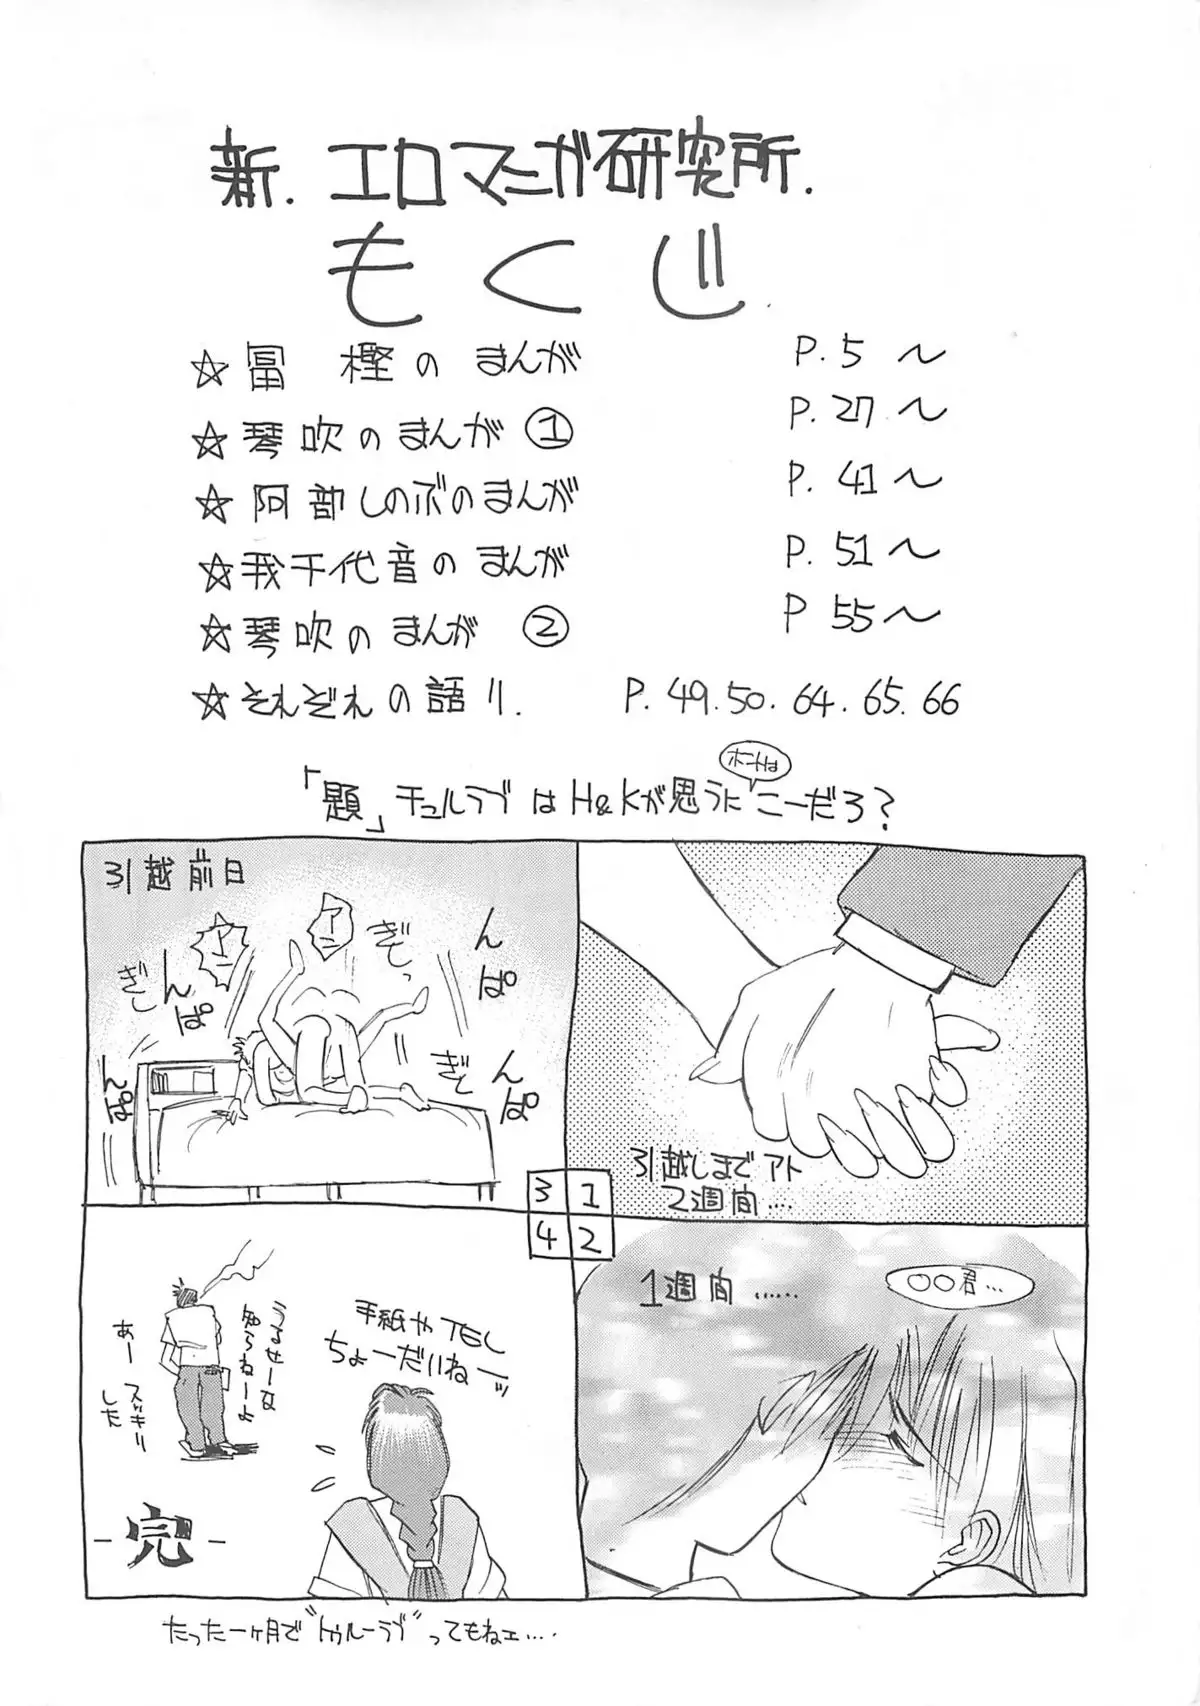 新.エロマニガ研究所.
もくじ
☆冨 樫のまんが P.5〜
☆琴吹のまんが① P.27〜
☆阿部しのぶのまんが P.41〜
☆我千代音のまんが P.51〜
☆琴吹のまんが② P55〜
☆それぞれの語り. P.49.50.64.65.66
「題」チュルラブはH&Kが思うにこーだろ?
ホントは
引越しまでアト
2週間....
1週間......
○○君...
引越前日
アン
アン
ぎしっ
ぎし
ぎし
んぱ
んぱ
んぱ
んぱ
3 1
4 2
手紙やTEL
ちょーだいねーッ
うるせーな
知らねーよ
あー スッキリ
した
-完-
たった一ヶ月で"トゥルーラブ"ってもねェ....